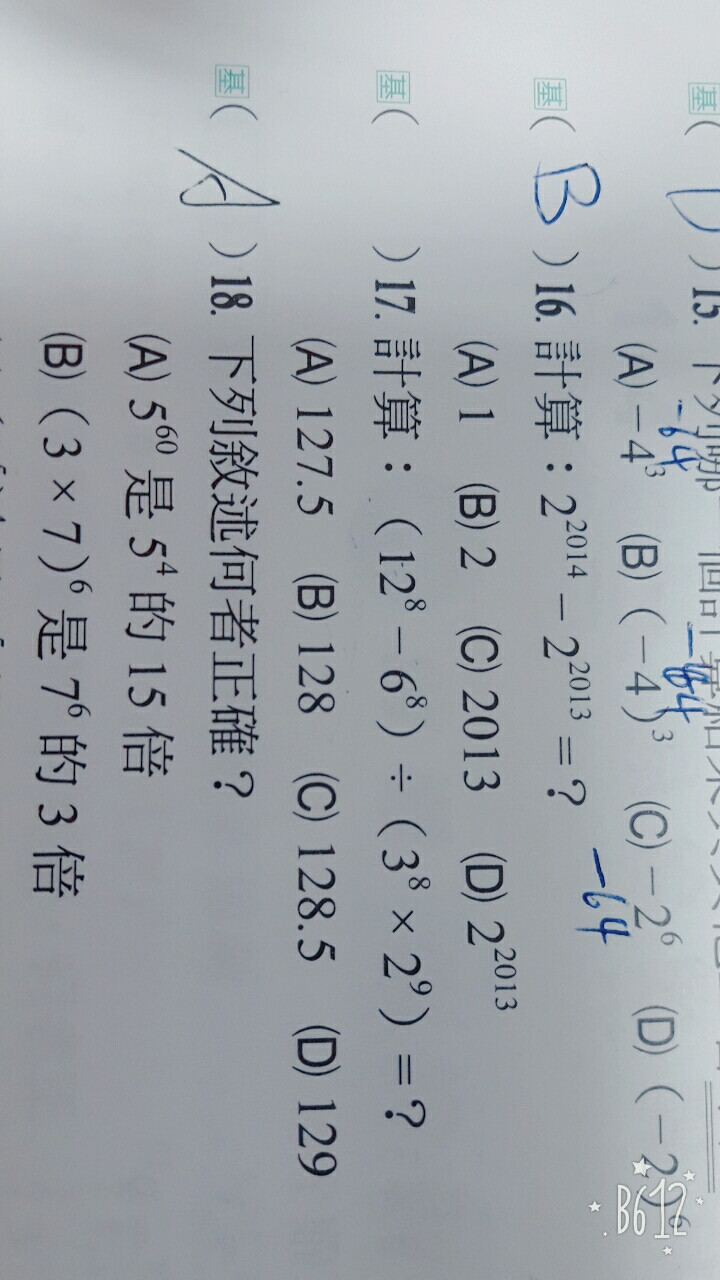 基( D )15. 下列哪一個計算結果
-64 -64
(A) -4³ (B) (-4)³ (C) -2⁶ (D) (-2)⁶
-64
基( B )16. 計算：2²⁰¹⁴ - 2²⁰¹³ = ?
(A) 1 (B) 2 (C) 2013 (D) 2²⁰¹³
基( )17. 計算：(12⁸ - 6⁸) ÷ (3⁸ × 2⁹) = ?
(A) 127.5 (B) 128 (C) 128.5 (D) 129
基( A )18. 下列敘述何者正確？
(A) 5⁶⁰ 是 5⁴ 的 15 倍
(B) (3 × 7)⁶ 是 7⁶ 的 3 倍
B612